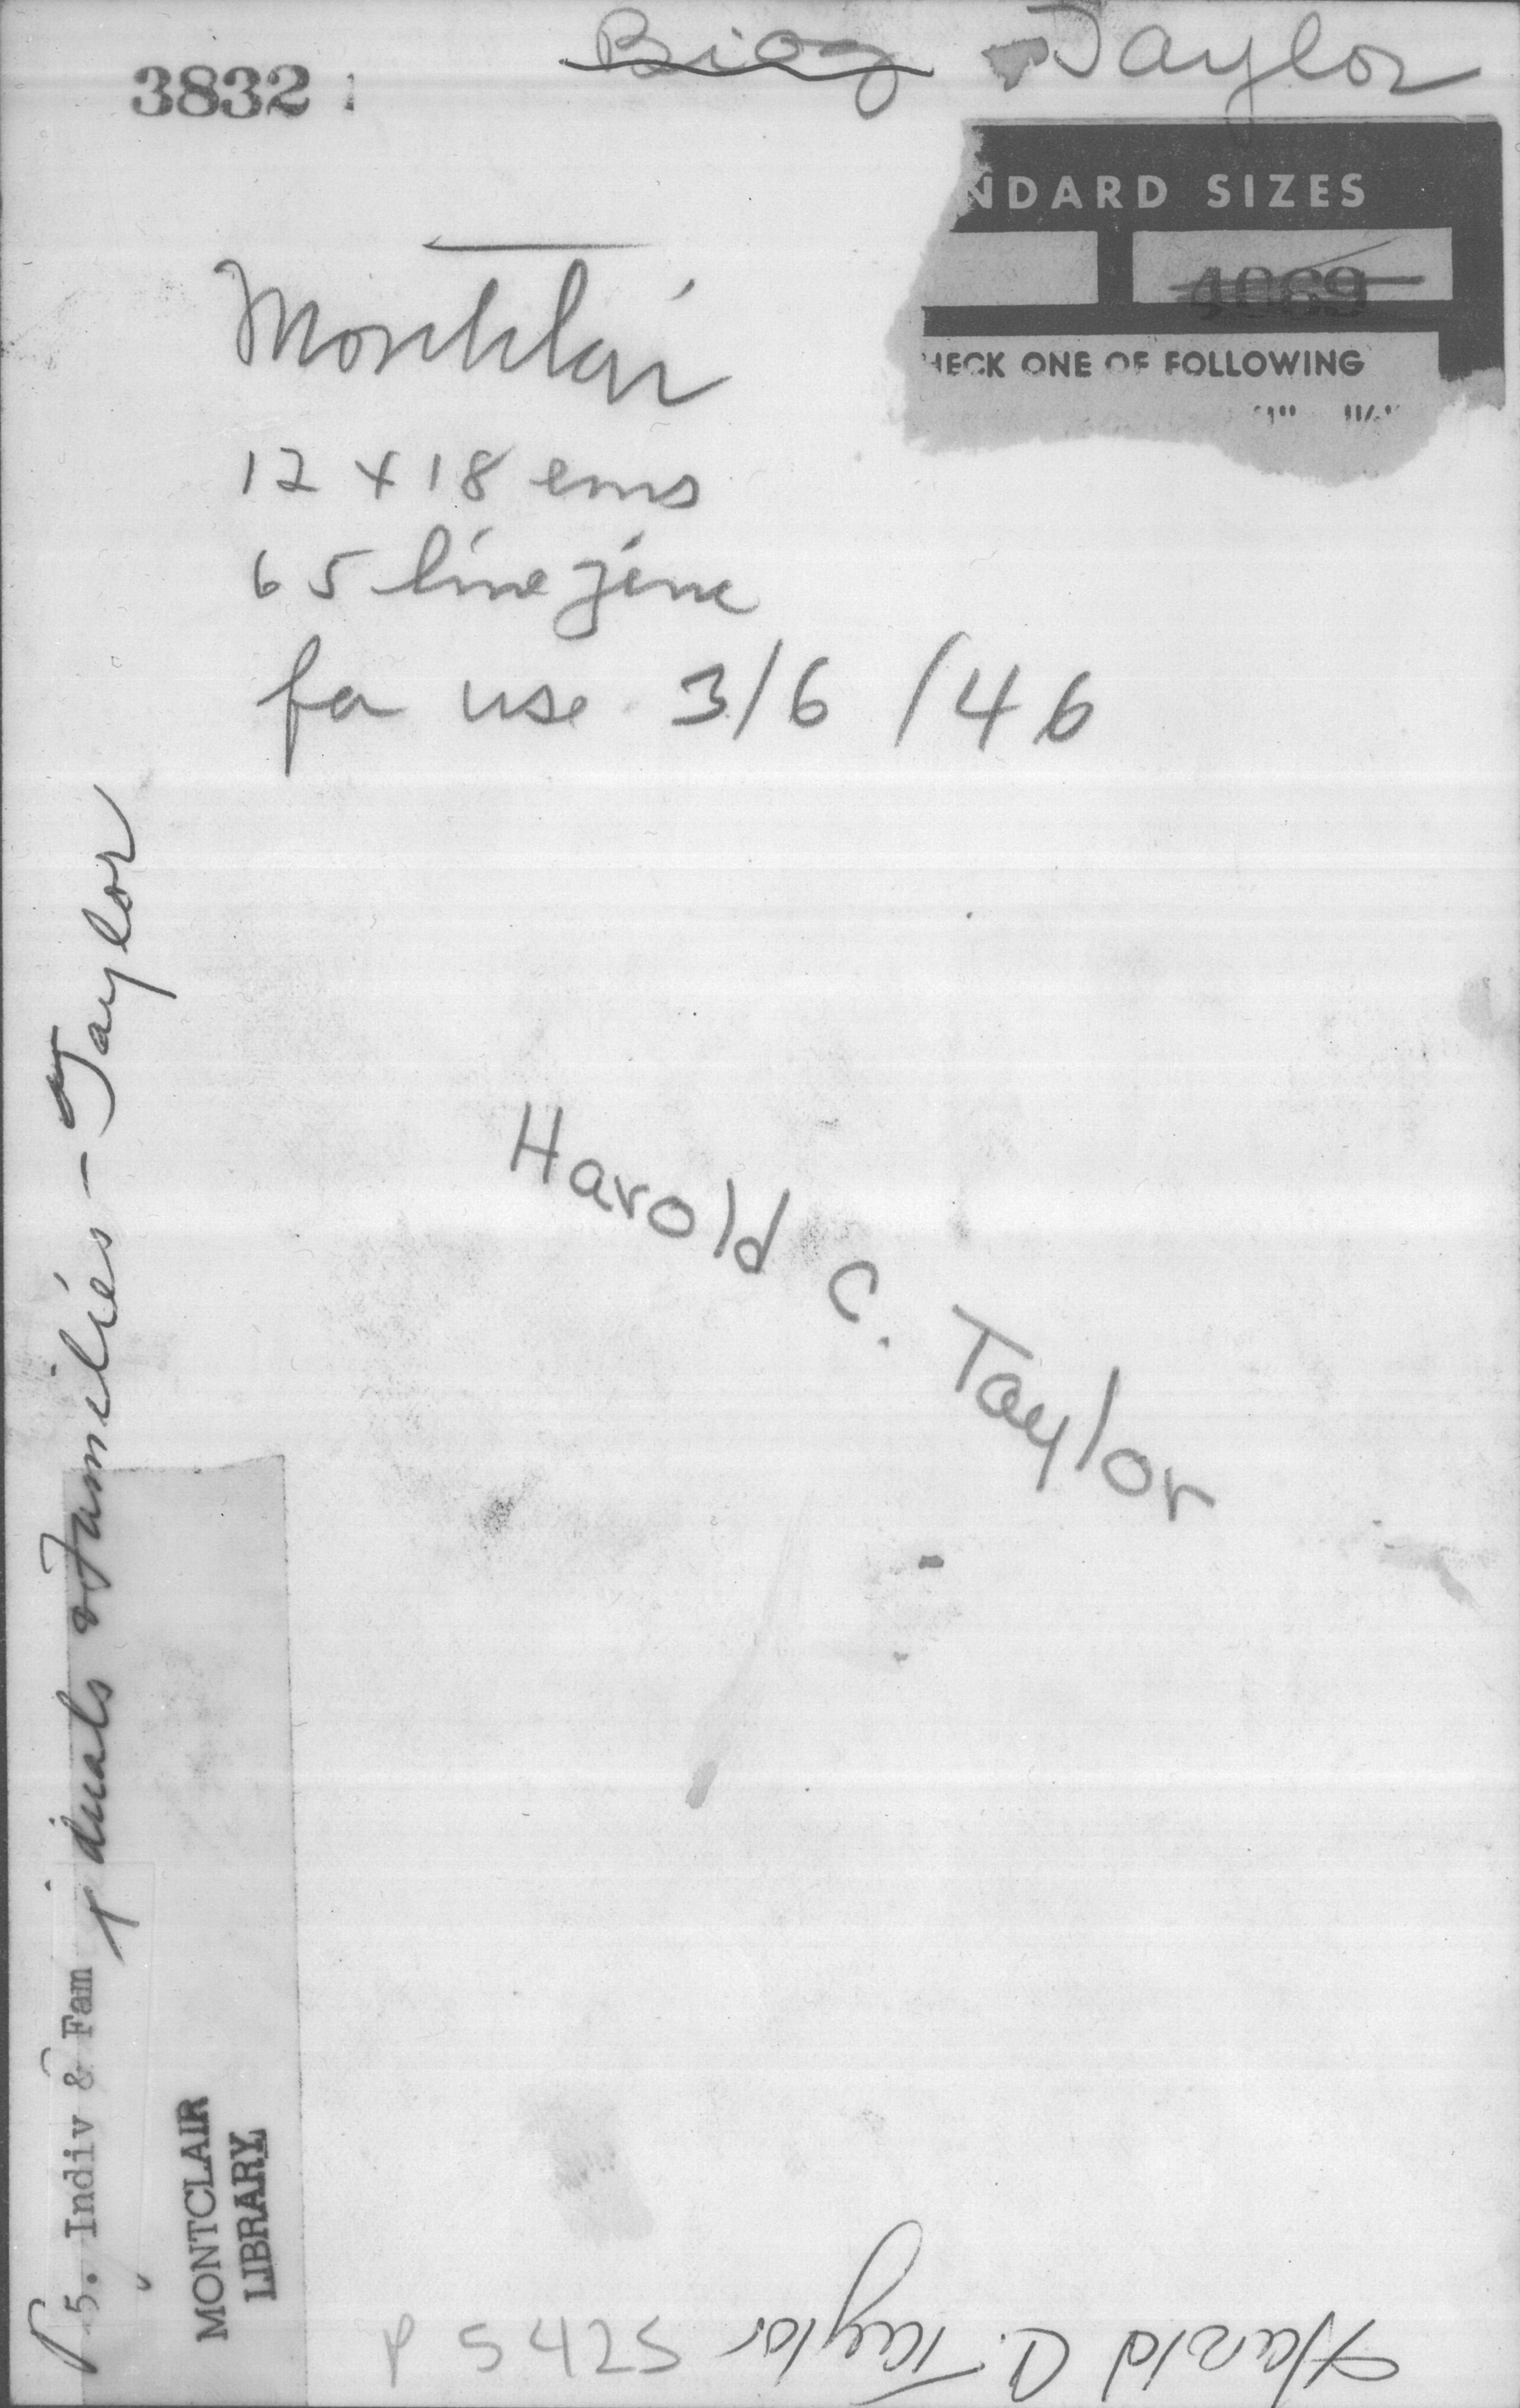 3832
Biog Taylor
NDARD SIZES
4069
HECK ONE OF FOLLOWING
Montclair
12 x 18 ems
65 line zinc
for use 3/6/46
Harold C. Taylor
P 5. Indiv & Fam
iduals & Families - Taylor
MONTCLAIR
LIBRARY
P 5425
Harold C. Taylor